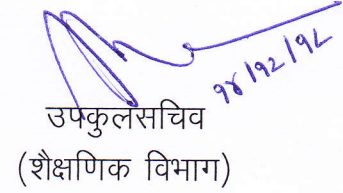 १४/१२/१८
उपकुलसचिव
(शैक्षणिक विभाग)